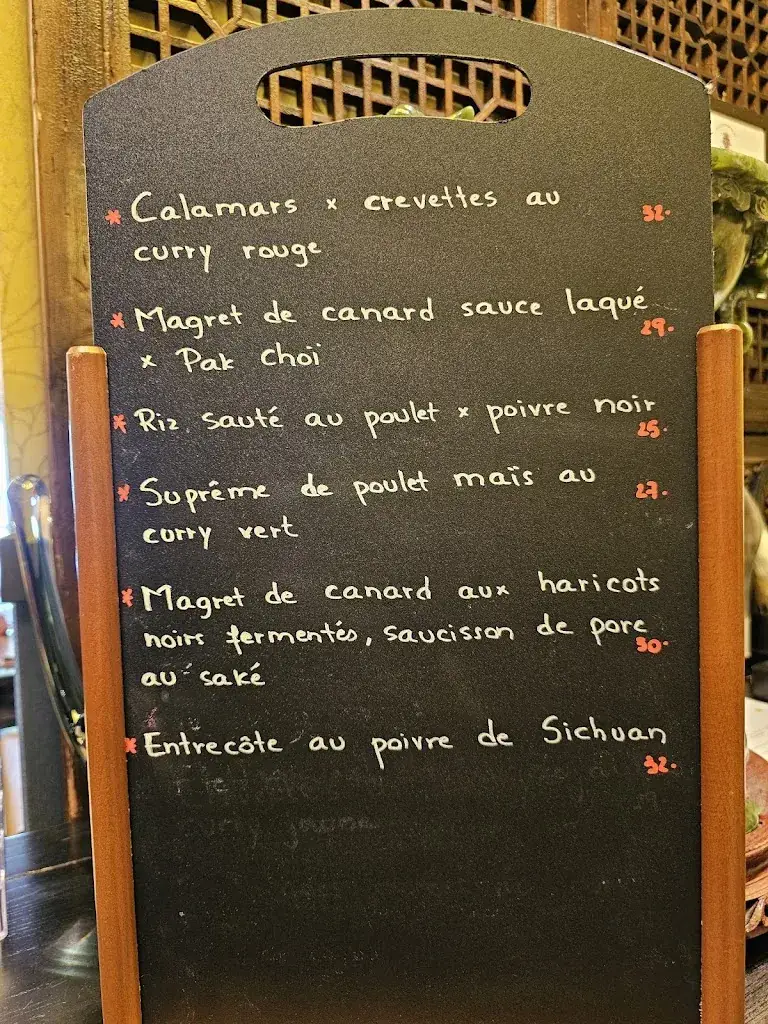 * Calamars x crevettes au 32.
curry rouge
* Magret de canard sauce laqué 29.
x Pak choï
* Riz sauté au poulet x poivre noir 25.
* Suprême de poulet maïs au 27.
curry vert
* Magret de canard aux haricots
noirs fermentés, saucisson de porc 30.
au saké
* Entrecôte au poivre de Sichuan 32.
curry jaune